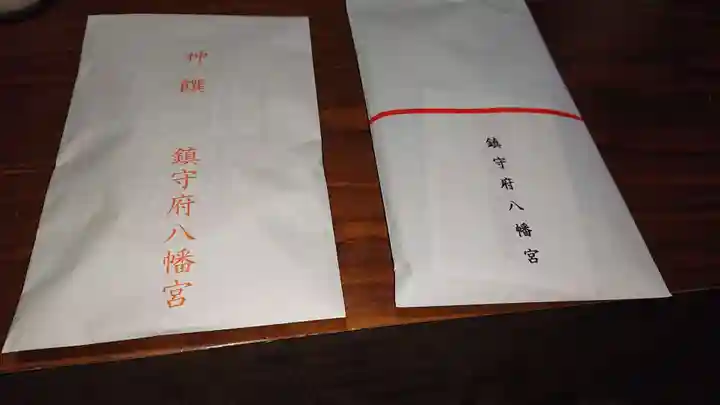 神饌
鎮守府八幡宮
鎮守府八幡宮